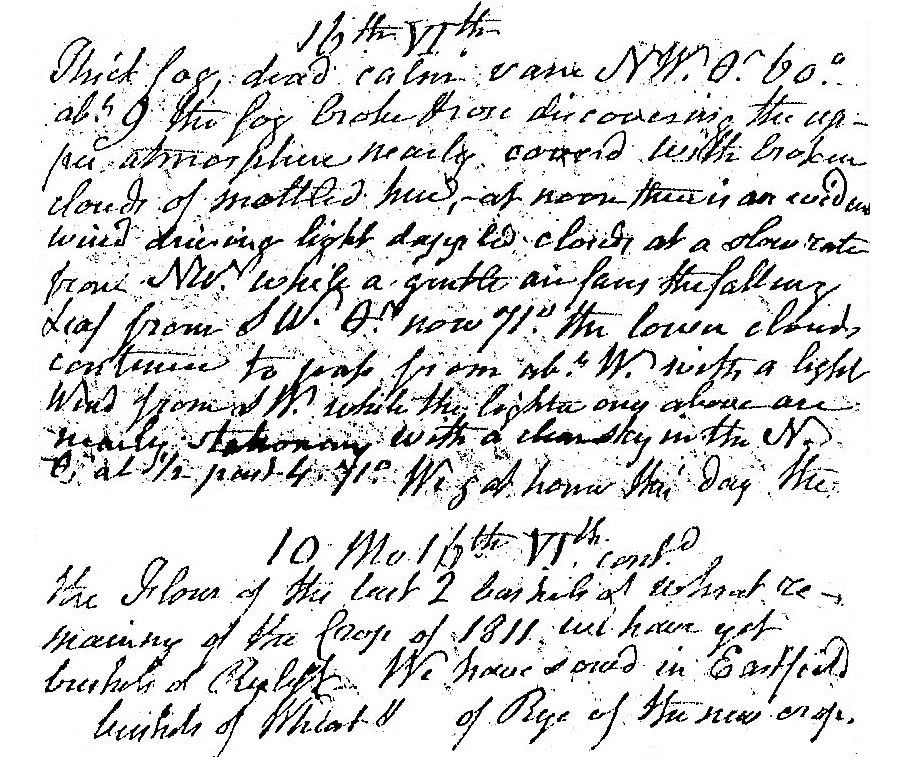 16th VIth
Thick fog, dead calm vane NW. Θr 60.°
abt 9 the fog broke & rose discovering the up-
per atmosphere nearly coverd with broken
clouds of mottled hue, - at noon there is an evident
wind driving light dappled clouds at a slow rate
from NW. while a gentle air fans the falling
Leaf from SW. Θr now 71.° the lower clouds
continue to pass from abt W. with a light
Wind from SW. while the lighter ones above are
nearly stationary with a clear sky in the N.
Θr at 1/2 past 4. 71° We got home this day the
10 Mo 16th VIth contd
the Flour of the last 2 bushels of wheat re-
maining of the Crop of 1811 we have yet
bushels of Rye left We have sowd in Eastfield
bushels of Wheat & of Rye of the new crop.